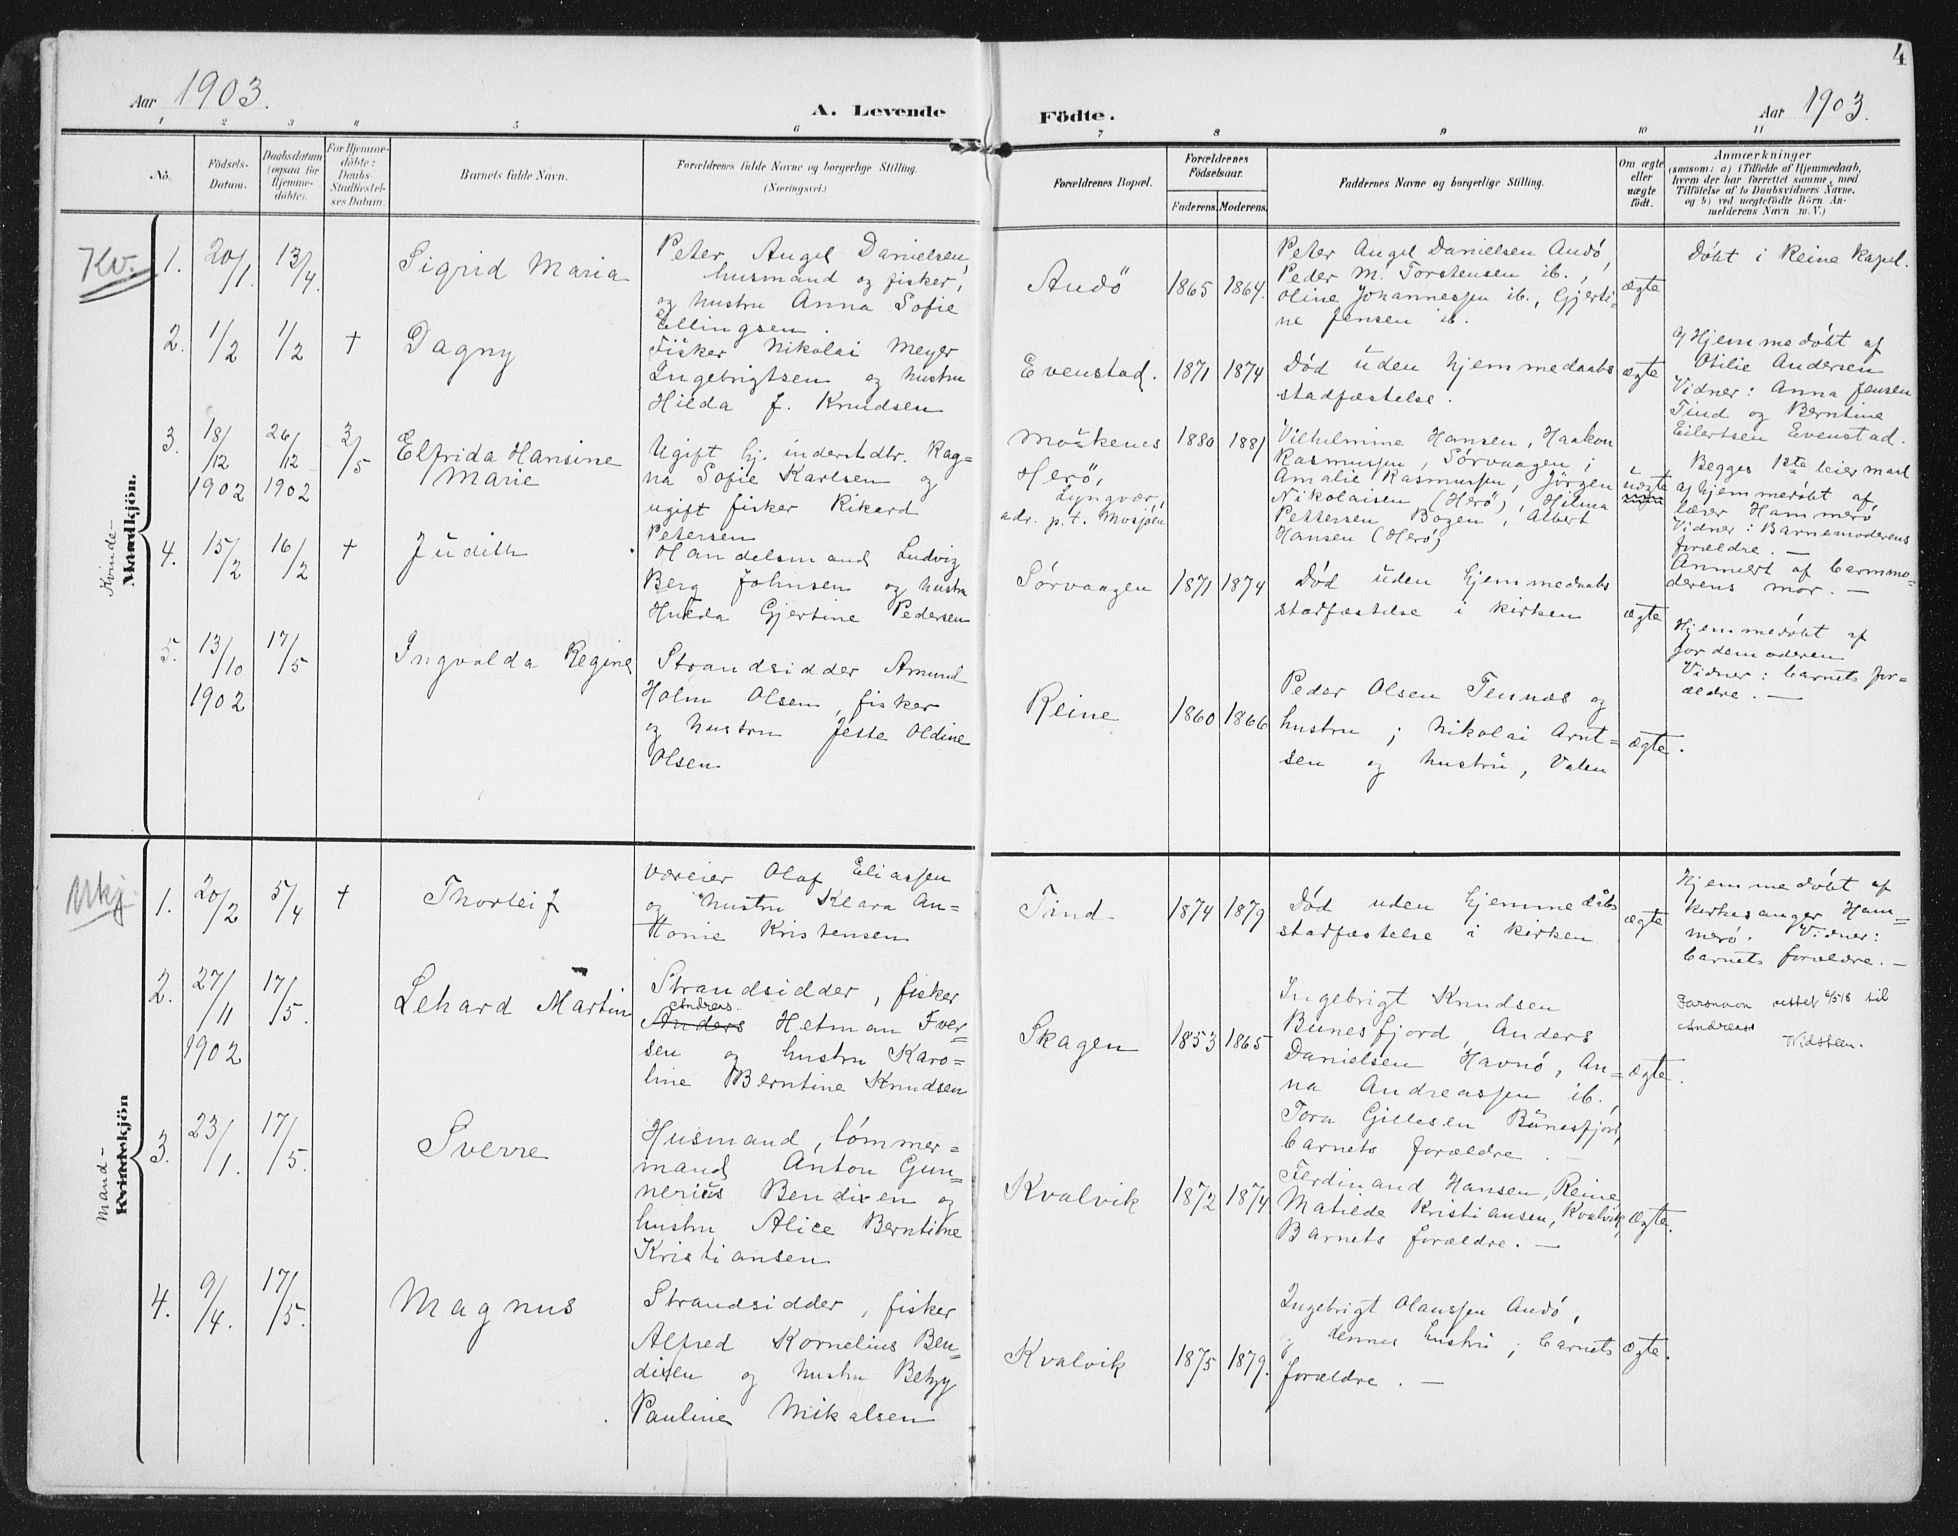 4
Aar 1903.
A. Levende
Födte.
Aar 1903.
1 2 3 4 5 6 7 8 9 10 11
No.
Födsels-
Datum.
Daabsdatum
(ogsaa for
Hjemme-
döbte).
For Hjemme-
döbte:
Daabs-
Stadfæstel-
ses Datum.
Barnets fulde Navn.
Forældrenes fulde Navne og borgerlige Stilling.
(Næringsvei.)
Forældrenes Bopæl.
Forældrenes
Födselsaar.
Faderens. Moderens.
Faddernes Navne og borgerlige Stilling.
Om ægte
eller
uægte
födt.
Anmærkninger
(saasom: a) i Tilfælde af Hjemmedaab,
hvem der har forrettet samme, med
Tilföielse af to Daabsvidners Navne,
og b) ved uægtefödte Börn An-
melderens Navn m. V.)
Kv.
Kvinde-
Mandkjön.
1. 20/1. 13/4. Sigrid Maria
Peter Angel Danielsen,
husmand og fisker,
og hustru Anna Sofie
Ellingsen.
Andö 1865 1864.
Peter Angel Danielsen Andö,
Peder M. Torstensen ib.,
Oline Johannessen ib., Gjerti-
ne Jensen ib.
ægte
Döbt i Reine kapel.
2. 1/2 1/2 + Dagny
Fisker Nikolai Meyer
Ingebrigtsen og hustru
Hilda J. Knudsen
Evenstad. 1871 1874
Död uden hjemmedaabs
stadfæstelse.
ægte
a/ Hjemmedöbt af
Otilie Andersen
Vidner: Anna Jensen
Tind og Berntine
Eilertsen Evenstad.
3. 18/12 1902 26/12 1902 3/5 Elfrida Hansine
Marie
Ugift gj. inderstdtr. Rag=
na Sofie Karlsen og
ugift fisker Rikard
Petersen
Moskenes
Herö,
Lyngvær,
adr. p.t. Mosjöen
1880 1881
Vilhelmine Hansen, Haakon
Rasmussen, Sörvaagen;
Amalie Rasmussen, Jörgen
Nikolaisen (Herö), Hilma
Pettersen Bogen, Albert
Hansen (Herö)
uægte
Begges 1ste leiermaal
a/ hjemmedöbt af
lærer Hammerö
Vidner: Barnemoderens
forældre. —
Anmeldt af barnmo=
derens mor. —
4. 15/2 16/2 + Judith
Handelsmand Ludvig
Berg Johnsen og hustru
Hulda Gjertine Pedersen
Sörvaagen 1871 1874
Död uden hjemmedaabs
stadfæstelse i kirken
ægte
Hjemmedöbt af
jordemoderen
Vidner: barnets for=
ældre. —
5. 13/10 1902 17/5 Ingvalda Regine
Strandsidder Amund
Holm Olsen, fisker
og hustru Jette Oldine
Olsen
Reine 1860 1866
Peder Olsen Tennæs og
hustru; Nikolai Arnt=
sen og hustru, Valen
ægte.
Mkj
Mand-
Kvindekjön
1. 20/2 5/4 + Thorleif
Væreier Olaf Eliassen
og hustru Klara An=
tonie Kristensen
Tind 1874 1879
Död uden hjemmedåbs
stadfæstelse i kirken
ægte
Hjemmedöbt af
kirkesanger Ham=
merö. Vidner:
barnets forældre. —
2. 27/11 1902 17/5. Lehard Martin
Strandsidder, fisker
Andreas
Anders Hetman Iver=
sen og hustru Karo=
line Berntine Knudsen
Skagen 1853 1865
Ingebrigt Knudsen
Bunesfjord, Anders
Danielsen Havnö, An=
na Andreassen ib.,
Tora Gillesen Bunesfjord,
barnets forældre. —
ægte.
Farsnavn rettet 6/5 18 til
Andreas
3. 23/1. 17/5. Sverre
Husmand, tömmer=
mand Anton Gun=
nerius Bendixen og
hustru Alice Berntine
Kristiansen
Kvalvik 1872 1874
Ferdinand Hansen, Reine
Matilde Kristiansen, Kvalvik,
Barnets forældre. —
ægte.
4. 9/4. 17/5. Magnus
Strandsidder, fisker
Alfred Kornelius Ben=
dixen og hustru Betzy
Pauline Mikalsen
Kvalvik 1875 1879.
Ingebrigt Olaussen Andö,
og dennes hustru; barnets
forældre. —
ægte.